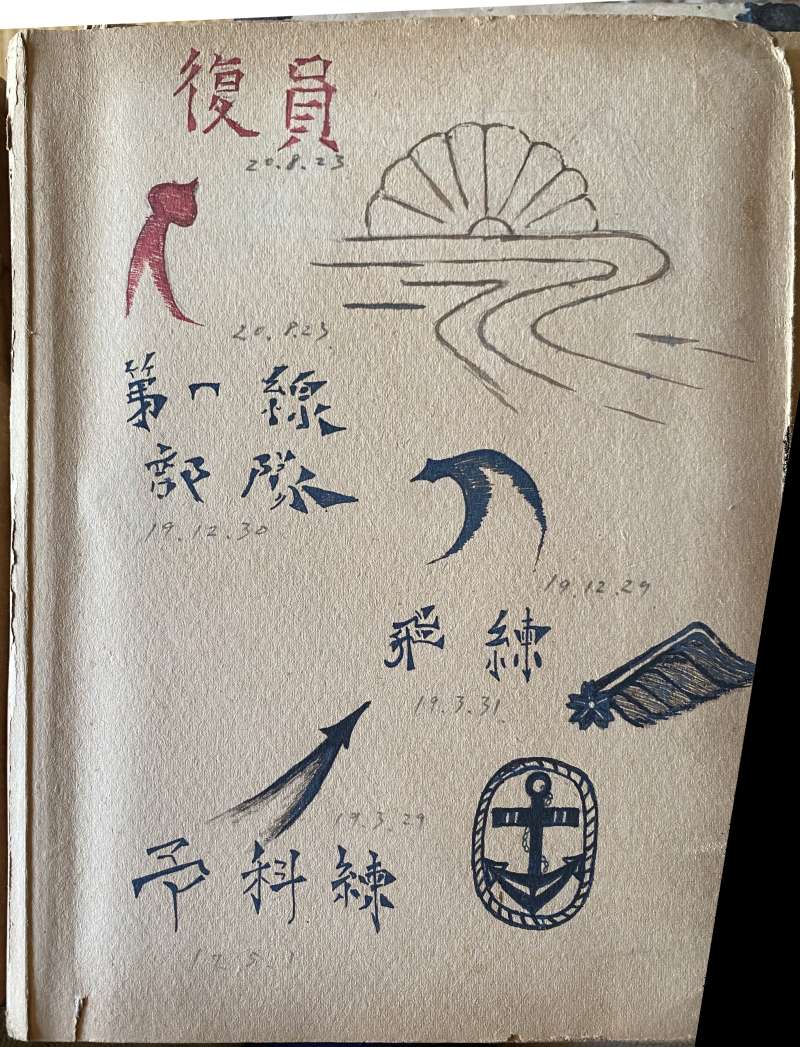 復員
20.8.23
20.8.23
第一線
部隊
19.12.30
19.12.29
飛練
19.3.31
19.3.29
予科練
17.5.1